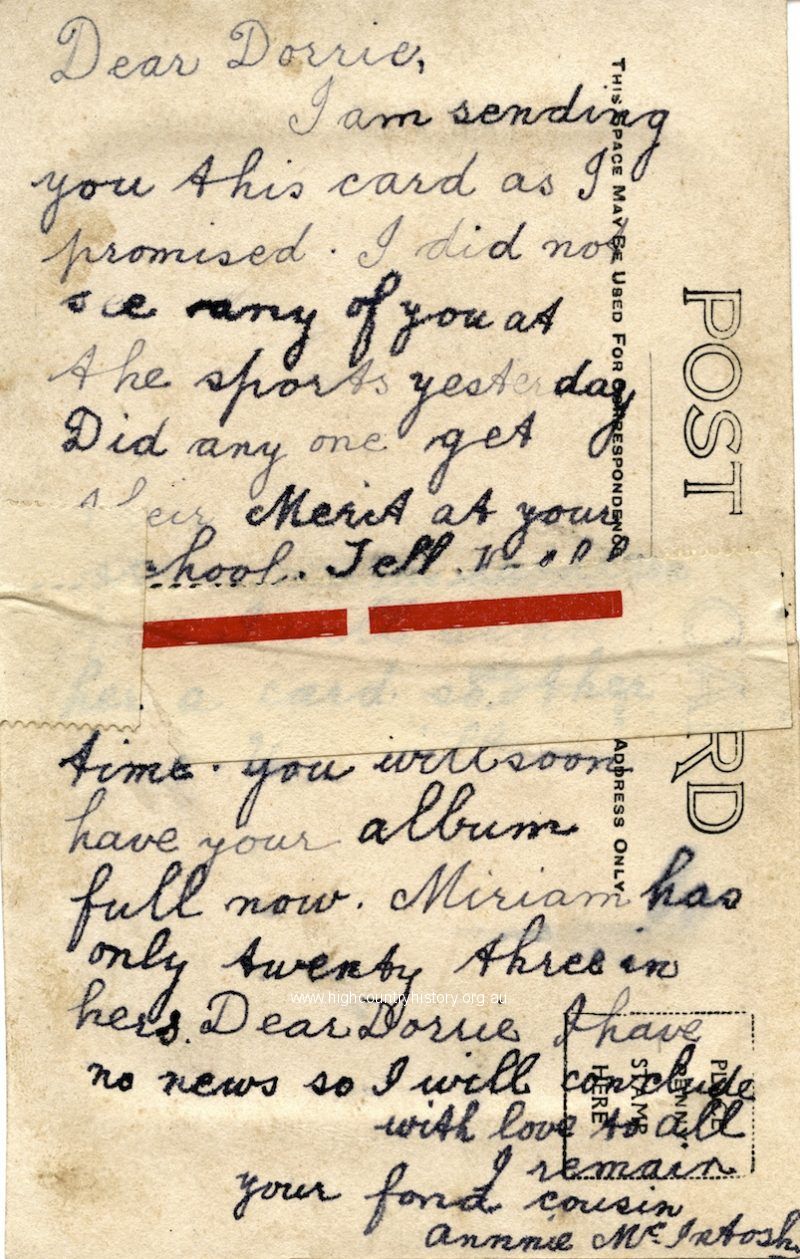 Dear Dorrie,
I am sending
you this card as I
promised. I did not
see any of you at
the sports yesterday
Did any one get
their Merit at your
school. Tell
her a card another
time. You will soon
have your album
full now. Miriam has
only twenty three in
hers. Dear Dorrie I have
no news so I will conclude
with love to all
I remain
your fond cousin
Annnie McIntosh
THIS SPACE MAY BE USED FOR CORRESPONDENCE
ADDRESS ONLY.
POST CARD
PLACE
PENNY
STAMP
HERE
www.highcountryhistory.org.au